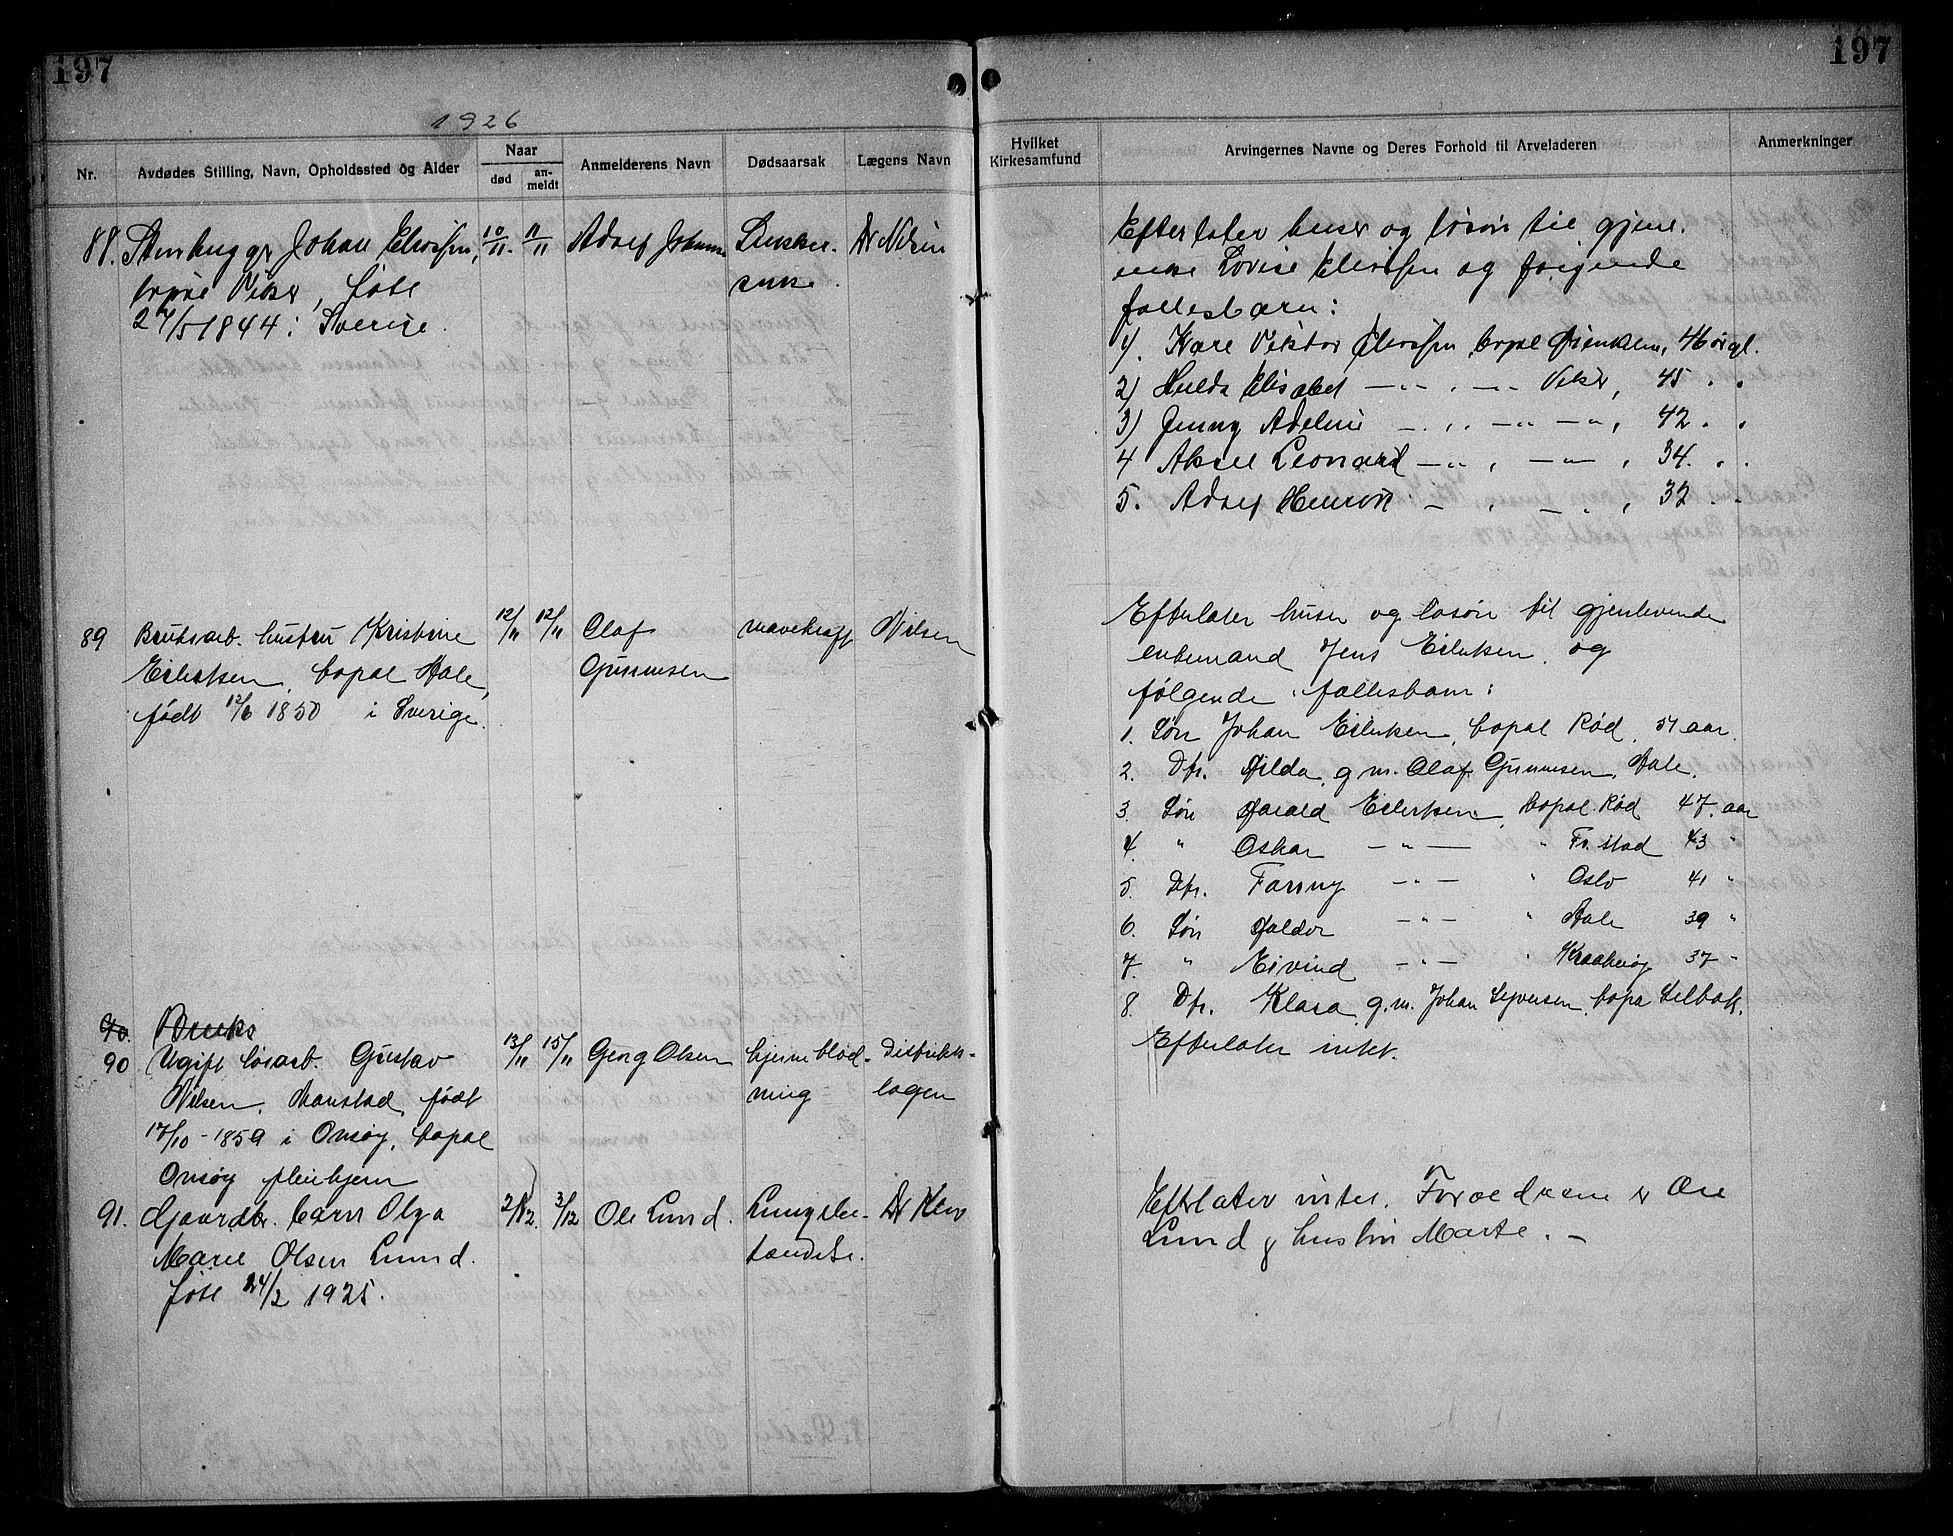 197
197
1926
Nr.
Avdødes Stilling, Navn, Opholdssted og Alder
Naar
død
an-
meldt
Anmelderens Navn
Dødsaarsak
Lægens Navn
Hvilket
Kirkesamfund
Arvingernes Navne og Deres Forhold til Arveladeren
Anmerkninger
88. Johan
Viker, født
27/5 1844 i Sverige.
10/11. 11/11
Adolf
Dr Nilsen
Efterlater huser og løsøre til gjenl.
enke Lovise og følgende
fællesbarn:
1). Viktor bopæl 46 aar gl.
2) Hulda Elisabet — " — Viker, 45 " "
3) Jenny Adeline — " — 42 " "
4 Aksel Leonard — " — , 34. " "
5. Adolf — " — , 32 "
89 Bruksarb. hustru Kristine
Eilertsen, bopæl Hale,
født 12/6 1850 i Sverige.
12/11 12/11
Olaf
Gunnersen
mavekræft
Nilsen
Efterlater huser og løsøre til gjenlevende
enkemand Jens Eilertsen og
følgende fællesbarn:
1. Søn Johan Eilertsen, bopæl Rød, 51 aar.
2. Dtr. Hilda, g.m. Olaf Gunnersen, Hale.
3 Søn Harald Eilertsen, bopæl Rød 47. aar
4. " Oskar — " — " Fr.stad 43 "
5. Dtr. Fanny — " — " Oslo 41 "
6. Søn Haldor — " — " Hale 39 "
7. " Eivind — " — " Kraakerøy 37 "
8. Dtr. Klara, g.m. Johan Syversen, bopæl Selbak.
90. Bruks
90 Ugift løsarb. Gustav
Nilsen, født
17/10 - 1859 i Onsøy, bopæl
Onsøy pleiehjem
13/11 15/11
Georg Olsen
hjerneblød-
ning
Distrikts-
lægen
Efterlater intet.
91. Gaardbr. barn Olga
Marie Olsen Lund.
født 24/2 1925.
2/12. 3/12
Ole Lund.
Lungebe-
tændelse.
Dr
Efterlater intet. Forældrene er Ole
Lund & hustru Marte. —